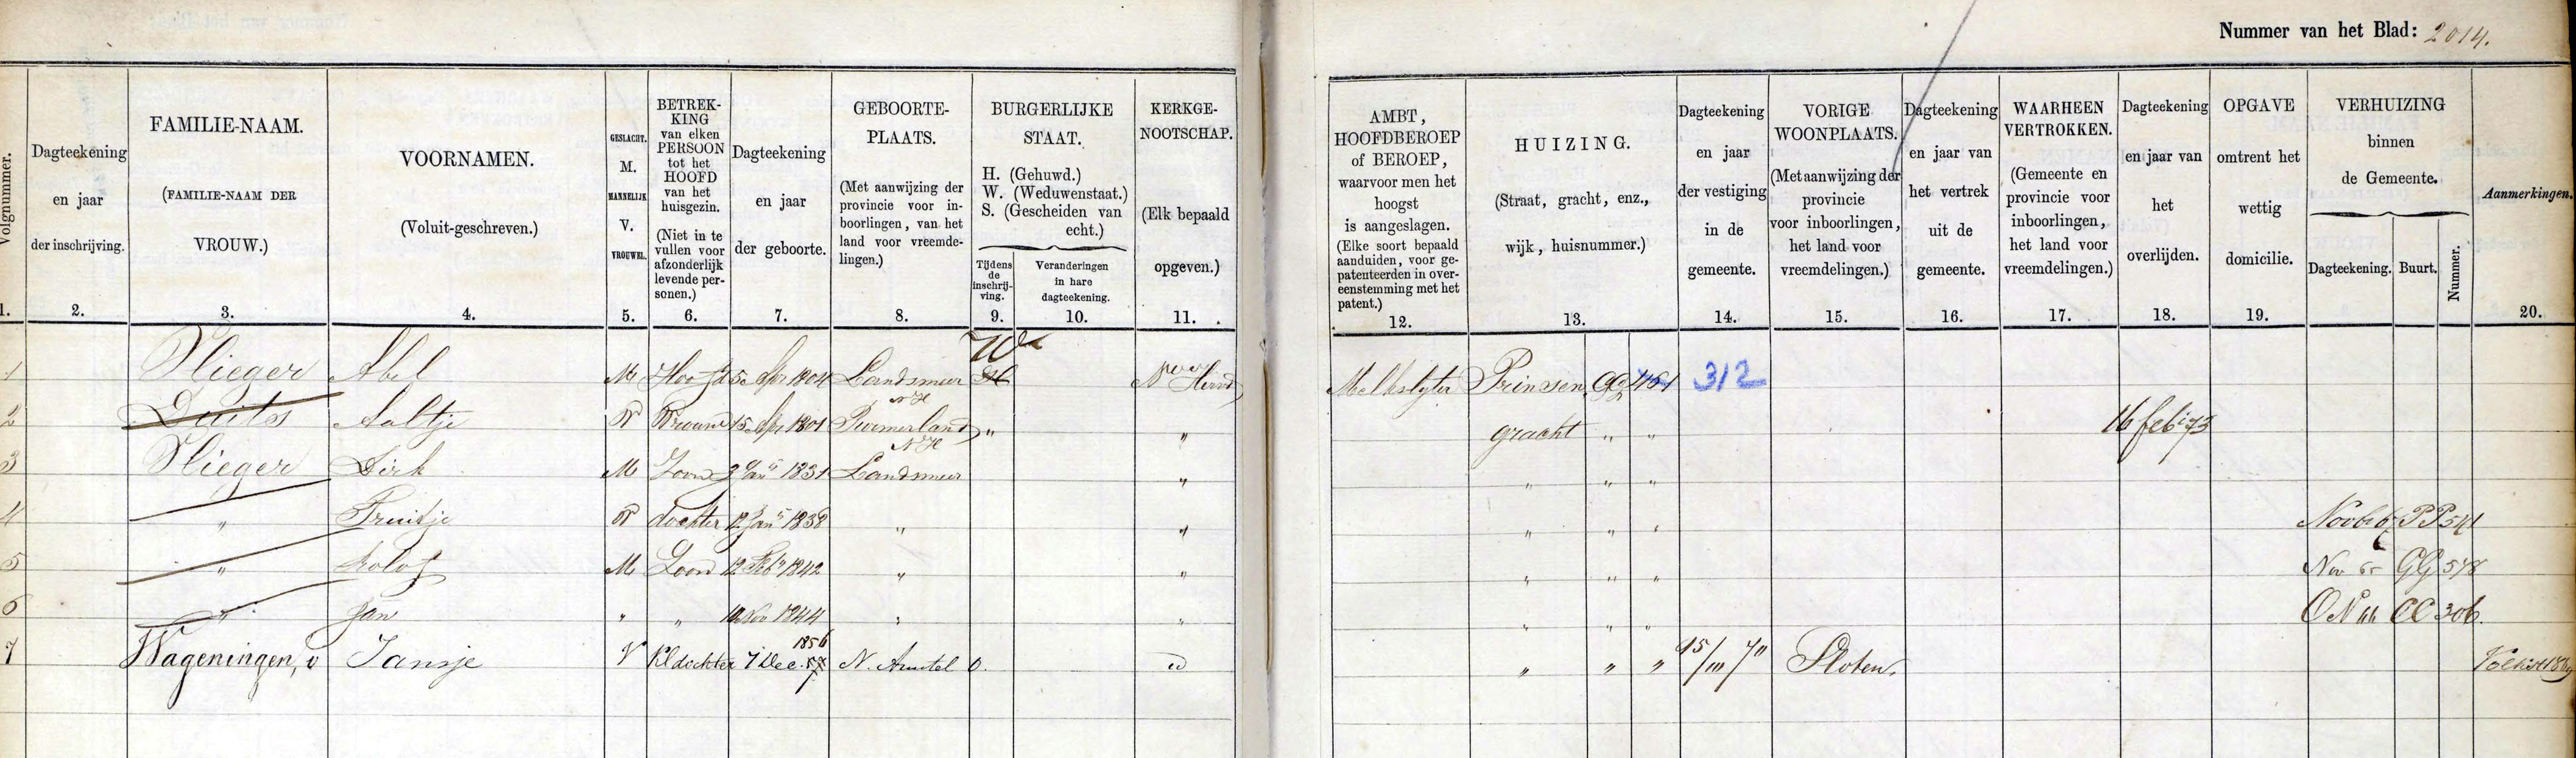 Nummer van het Blad: 2014.
Volgnummer.
1.
Dagteekening
en jaar
der inschrijving.
2.
FAMILIE-NAAM.
(FAMILIE-NAAM DER
VROUW.)
3.
VOORNAMEN.
(Voluit-geschreven.)
4.
GESLACHT.
M.
MANNELIJK
V.
VROUWEL.
5.
BETREK-
KING
van elken
PERSOON
tot het
HOOFD
van het
huisgezin.
(Niet in te
vullen voor
afzonderlijk
levende per-
sonen.)
6.
Dagteekening
en jaar
der geboorte.
7.
GEBOORTE-
PLAATS.
(Met aanwijzing der
provincie voor in-
boorlingen, van het
land voor vreemde-
lingen.)
8.
BURGERLIJKE
STAAT.
H. (Gehuwd.)
W. (Weduwenstaat.)
S. (Gescheiden van
echt.)
Tijdens
de
inschrij-
ving.
9.
Veranderingen
in hare
dagteekening.
10.
KERKGE-
NOOTSCHAP.
(Elk bepaald
opgeven.)
11.
AMBT,
HOOFDBEROEP
of BEROEP,
waarvoor men het
hoogst
is aangeslagen.
(Elke soort bepaald
aanduiden, voor ge-
patenteerden in over-
eenstemming met het
patent.)
12.
HUIZING.
(Straat, gracht, enz.,
wijk, huisnummer.)
13.
Dagteekening
en jaar
der vestiging
in de
gemeente.
14.
VORIGE
WOONPLAATS.
(Met aanwijzing der
provincie
voor inboorlingen,
het land voor
vreemdelingen.)
15.
Dagteekening
en jaar van
het vertrek
uit de
gemeente.
16.
WAARHEEN
VERTROKKEN.
(Gemeente en
provincie voor
inboorlingen,
het land voor
vreemdelingen.)
17.
Dagteekening
en jaar van
het
overlijden.
18.
OPGAVE
omtrent het
wettig
domicilie.
19.
VERHUIZING
binnen
de Gemeente.
Dagteekening. Buurt. Nummer.
Aanmerkingen.
20.
1 Vlieger Abel M Hoofd 5 Apr 1804 Landsmeer H W Ned Herv Melkslyter Prinsen GG 461 312
NH
2 Duits Aaltje V Vrouw 15 Apr 1801 Purmerland " " gracht " " 16 feb 73
NH
3 Vlieger Dirk M Zoon 3 Jan 1831 Landsmeer " " " "
4 " Truitje V dochter 12 Jan 1838 " " " " " Novb PP 541
5 " Rolof M Zoon 12 Feb 1842 " " " " " Nov 65 GG 578
6 " Jan " " Nov 1844 " " " " " CC 306.
1856
7 Wageningen, v Jansje V Kldochter 7 Dec. 57 N. Amstel O. id " " " 15/11 70 Sloten.